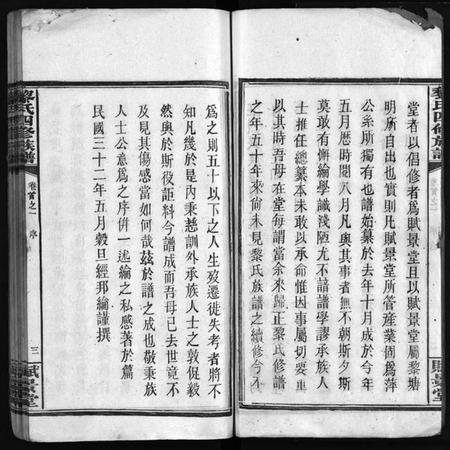 堂者以倡修者為賦景堂且以賦景堂屬黎塘
明所自出也實則凡賦景堂所管產業固為萍
公系所獨有也譜始纂於去年十月成於今年
五月歷時閱八月凡與其事者無不朝斯夕斯
莫敢有懈綸學識淺陋尤不諳譜學謬承族人
推任總纂本未敢以承命惟因事屬切要重
以其時吾母在堂每謂當余來歸正黎氏修譜
之年五十年來尚未見黎氏族譜之續修今不
為之則五十以下之人生歿遷徙失考者將不
知凡幾於是內秉慈訓外承族人士之敦促毅
然與於斯役詎料今譜成而吾母已去世竟不
及見其傷感當如何哉茲於譜之成也敬秉族
人士公意為之序併一述綸之私感著於篇
民國三十二年五月穀旦經邦綸謹撰
黎氏四修族譜
卷首之一
序
三
賦景堂
黎氏四修族譜
卷首之一
賦景堂